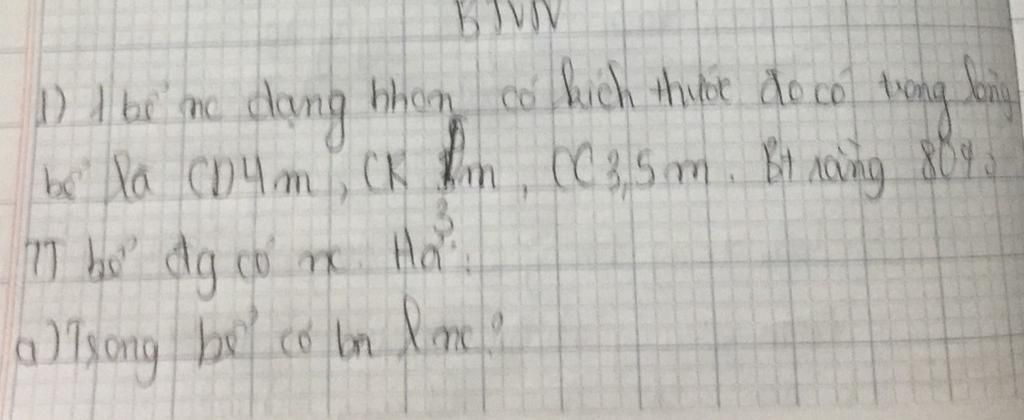 BTVN
1) 1 bể nc dạng hhcn có kích thước đo có trong lòng
bể là CD4m, CR m, CC 3,5m. Bt rằng 80%
TT bể đg có nc. Hỏi:
a) Trong bể có bn l nc?